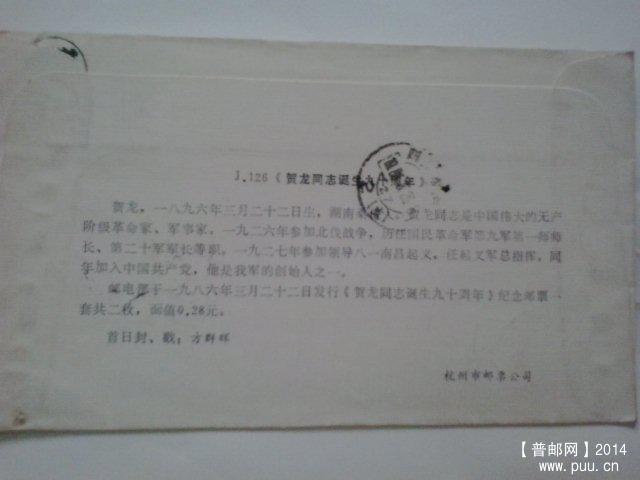 J.126《贺龙同志诞生九十周年》
贺龙，一八九六年三月二十二日生，湖南桑 人。贺龙同志是中国伟大的无产
阶级革命家、军事家。一九二六年参加北伐战争，历任国民革命军第九军第一师师
长、第二十军军长等职。一九二七年参加领导八一南昌起义，任起义军总指挥，同
年加入中国共产党，他是我军的创始人之一。
邮电部于一九八六年三月二十二日发行《贺龙同志诞生九十周年》纪念邮票一
套共二枚，面值0.28元。
首日封、戳：方群晖
杭州市邮票公司
【普邮网】2014
www.puu.cn